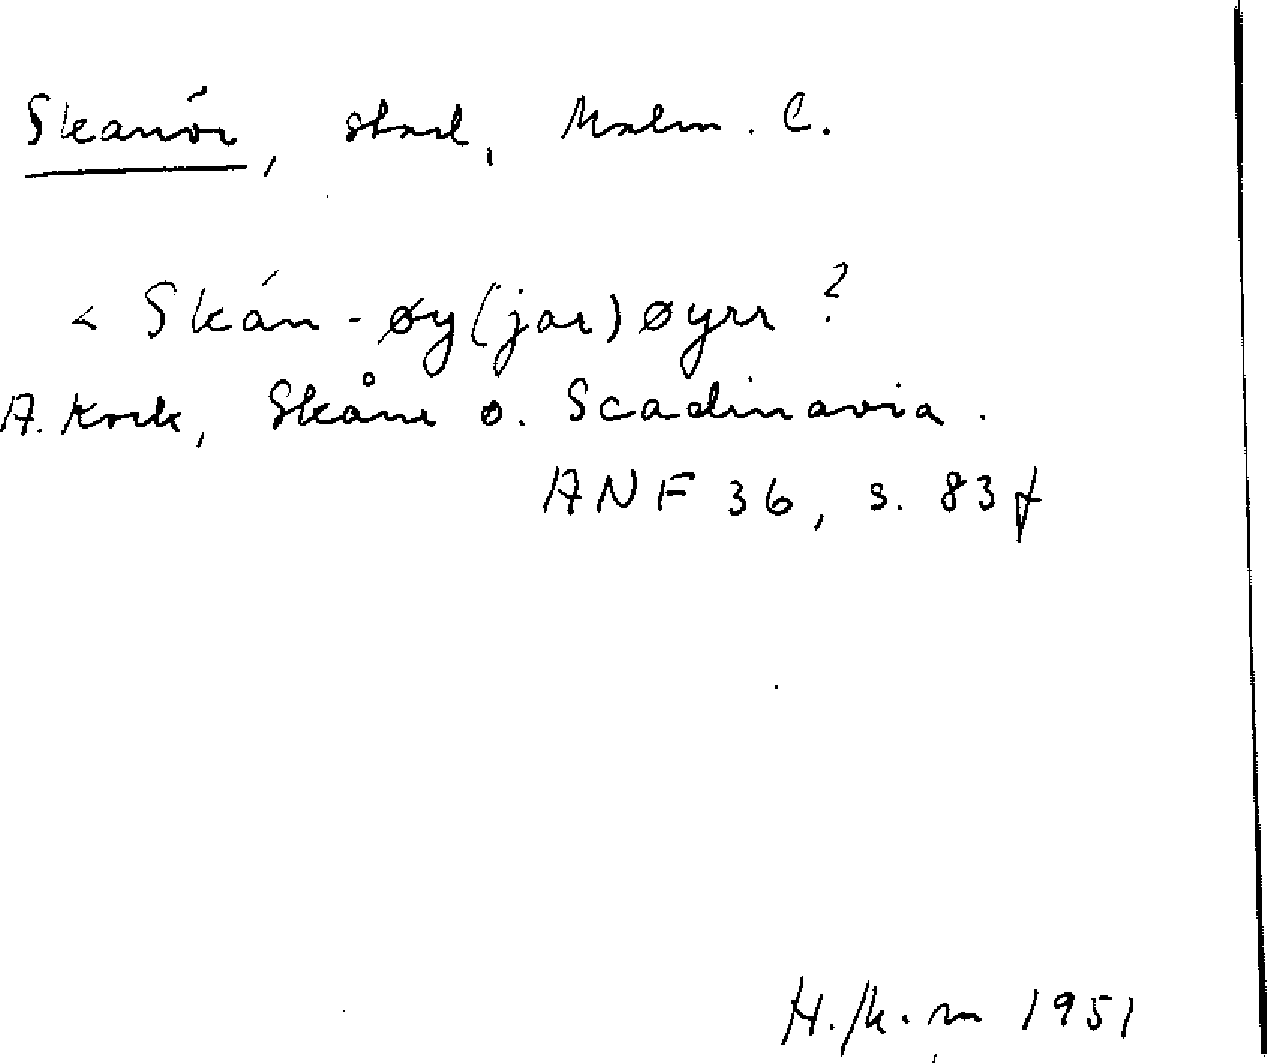 Skanör, stad, Malm. C.
< Skán-øy(jar)øyrr ?
A. Kock, Skåne o. Scadinavia.
ANF 36, s. 83 f
1951